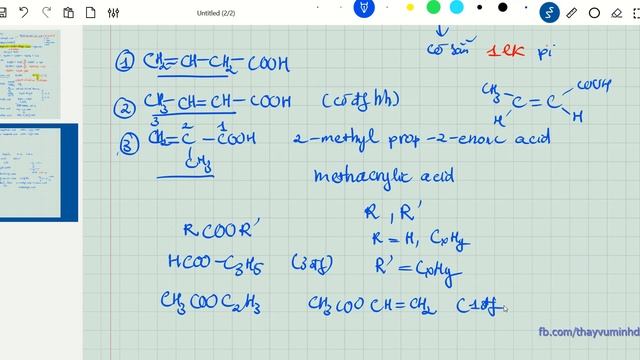 Untitled (2/2)
có sẵn 1 lk pi
① CH2=CH-CH2-COOH
② CH3-CH=CH-COOH (có đf hh)
CH3 COOH
C=C
H H
3 2 1
③ CH2=C-COOH 2-methyl prop-2-enoic acid
CH3
methacrylic acid
RCOOR' R, R'
R=H, CxHy
HCOO-C3H5 (3 đf) R'=CxHy
CH3COOC2H3 CH3COOCH=CH2 (1 đf
fb.com/thayvuminhd